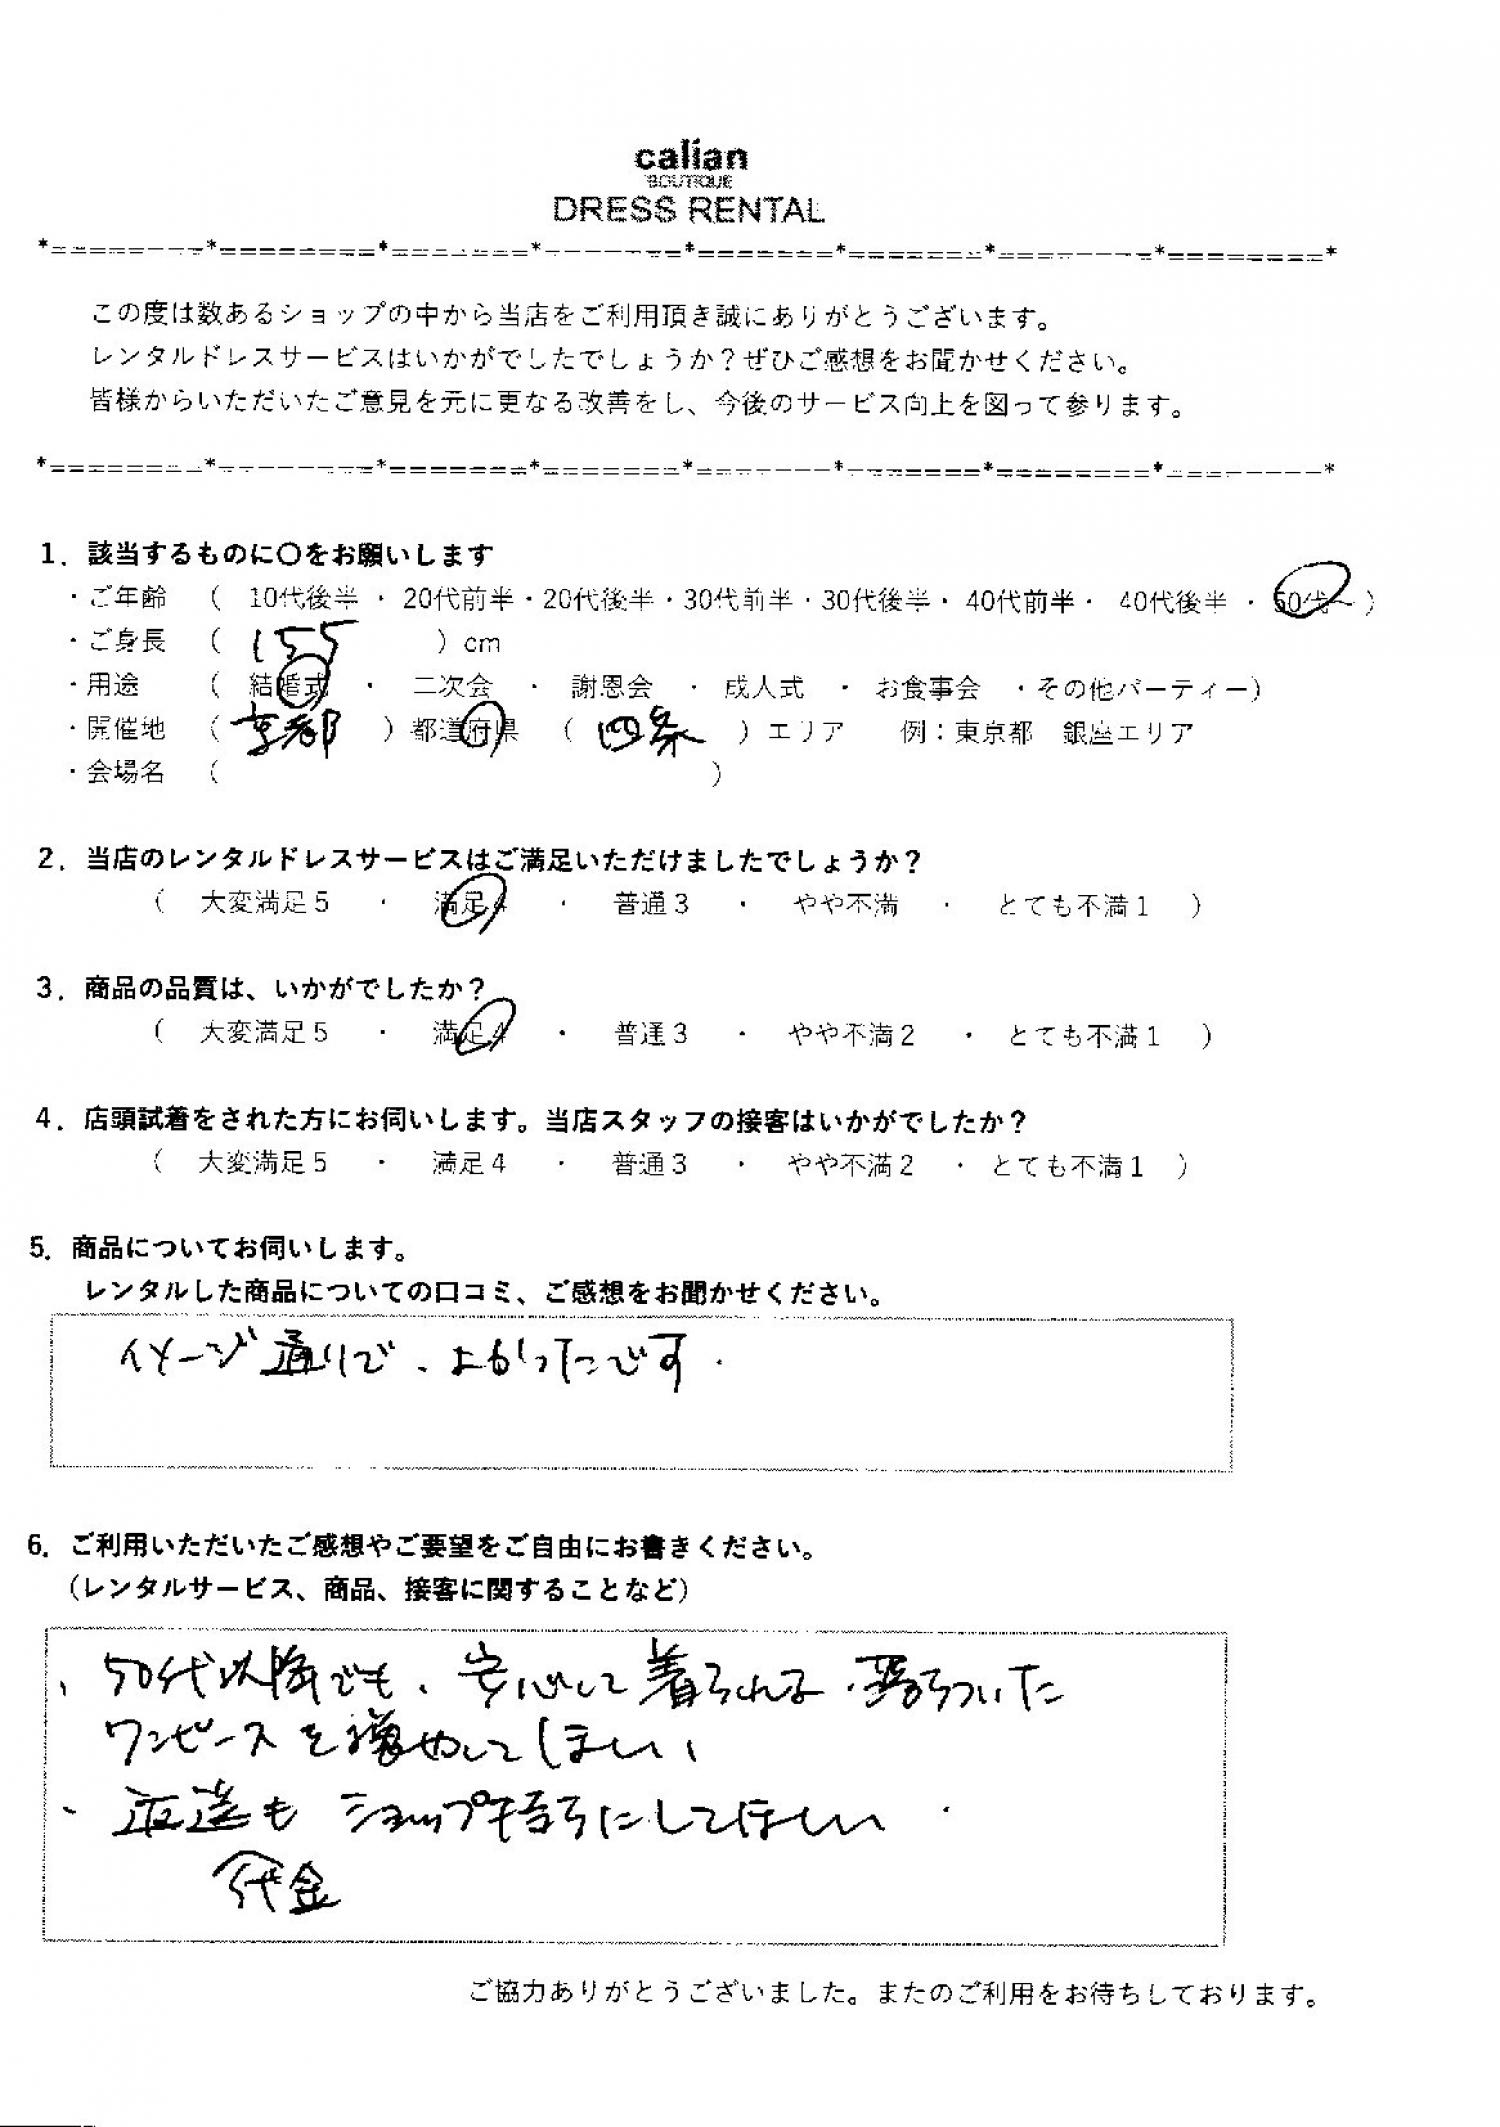 calian
BOUTIQUE
DRESS RENTAL
*========*========*=======*=======*=======*=======*========*========*
この度は数あるショップの中から当店をご利用頂き誠にありがとうございます。
レンタルドレスサービスはいかがでしたでしょうか?ぜひご感想をお聞かせください。
皆様からいただいたご意見を元に更なる改善をし、今後のサービス向上を図って参ります。
*========*========*=======*=======*=======*=======*========*========*
1. 該当するものに〇をお願いします
・ご年齢 ( 10代後半 ・ 20代前半・20代後半・30代前半・30代後半・ 40代前半・ 40代後半 ・ 50代~ )
・ご身長 ( 155 ) cm
・用途 ( 結婚式 ・ 二次会 ・ 謝恩会 ・ 成人式 ・ お食事会 ・その他パーティー)
・開催地 ( 京都 ) 都道府県 ( 四条 ) エリア 例:東京都 銀座エリア
・会場名 ( )
2. 当店のレンタルドレスサービスはご満足いただけましたでしょうか?
( 大変満足5 ・ 満足4 ・ 普通3 ・ やや不満 ・ とても不満1 )
3. 商品の品質は、いかがでしたか?
( 大変満足5 ・ 満足4 ・ 普通3 ・ やや不満2 ・ とても不満1 )
4. 店頭試着をされた方にお伺いします。当店スタッフの接客はいかがでしたか?
( 大変満足5 ・ 満足4 ・ 普通3 ・ やや不満2 ・ とても不満1 )
5. 商品についてお伺いします。
レンタルした商品についての口コミ、ご感想をお聞かせください。
イメージ通りで、よかったです.
6. ご利用いただいたご感想やご要望をご自由にお書きください。
(レンタルサービス、商品、接客に関することなど)
、50代以降でも、安心して着られる、落ちついた
ワンピースを増やしてほしい、
、返送も ショップ持ちにしてほしい.
代金
ご協力ありがとうございました。またのご利用をお待ちしております。